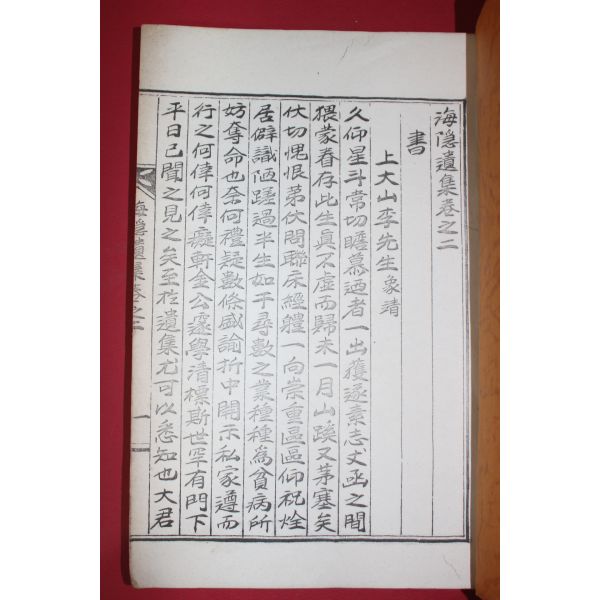 海隱遺集卷之二
書
上大山李先生象靖
久仰星斗常切瞻慕迺者一出獲遂素志丈函之間
猥蒙眷存此生眞不虛而歸未一月山蹊又茅塞矣
伏切愧恨第伏問聯床經軆一向崇重區區仰祝烇
居僻識陋蹉過半生如干尋數之業種種爲貧病所
妨奪命也奈何禮疑數條盛諭折中開示私家遵而
行之何倖何倖癡軒金公邃學清標斯世罕有門下
平日已聞之見之矣至於遺集尤可以悉知也大君
海隱遺集卷之二
一